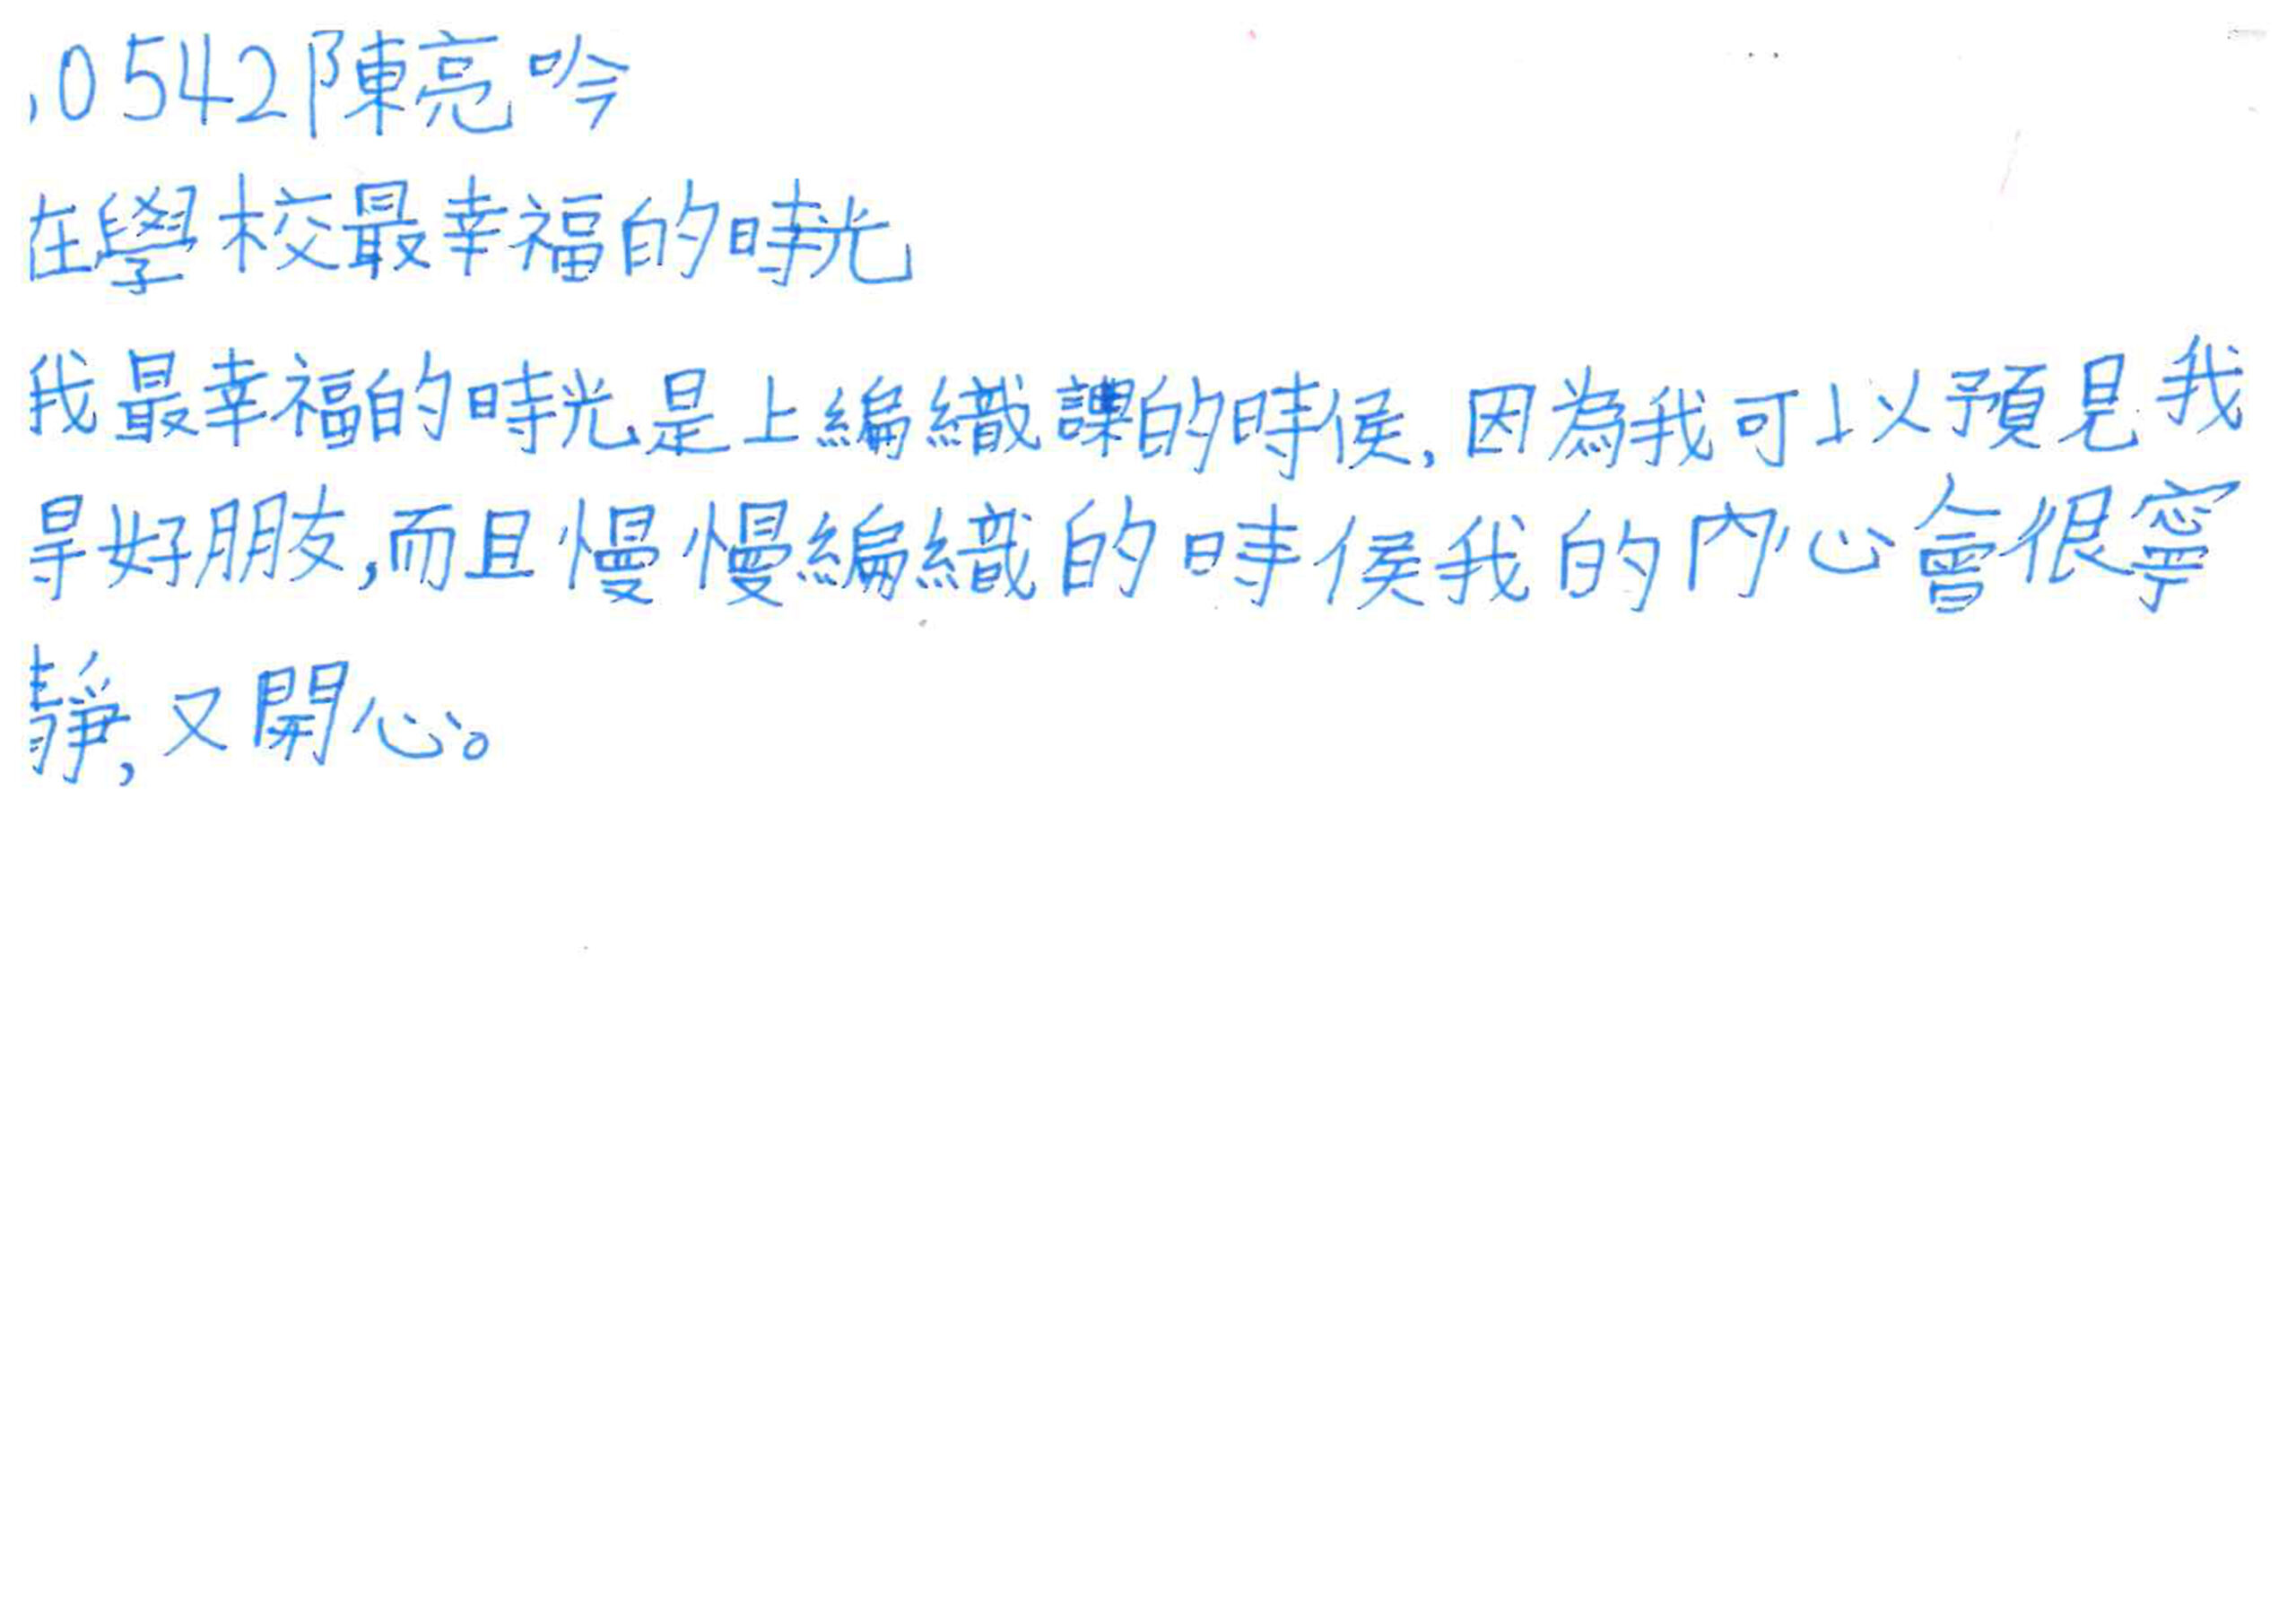 10542陳亮吟
在學校最幸福的時光
我最幸福的時光是上編織課的時侯,因為我可以預見我
得好朋友,而且慢慢編織的時侯我的內心會很寧
靜,又開心。